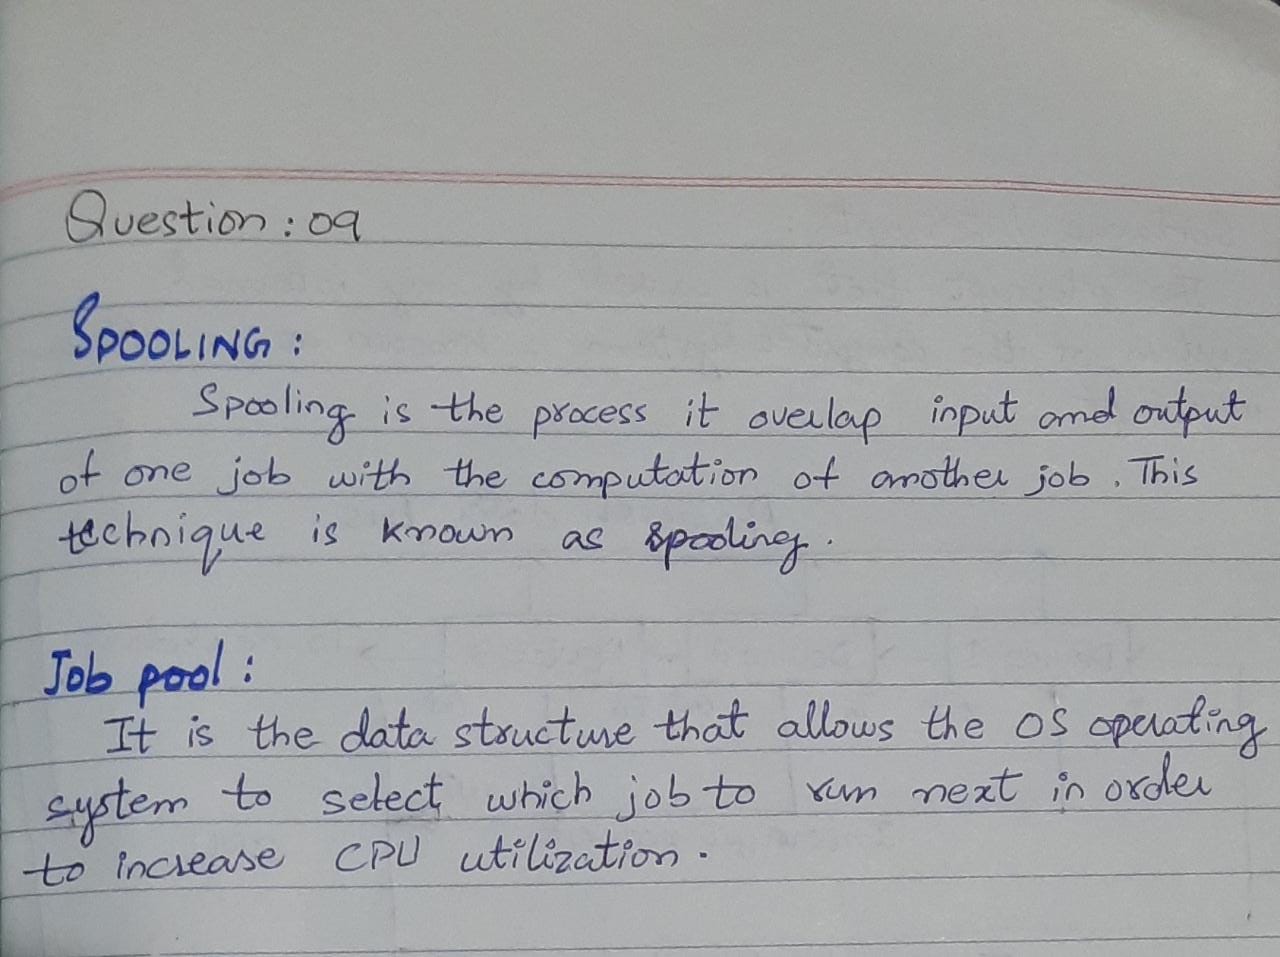 Question : 09
SPOOLING :
Spooling is the process it overlap input and output
of one job with the computation of another job. This
technique is known as spooling.
Job pool :
It is the data structure that allows the OS operating
system to select which job to run next in order
to increase CPU utilization.